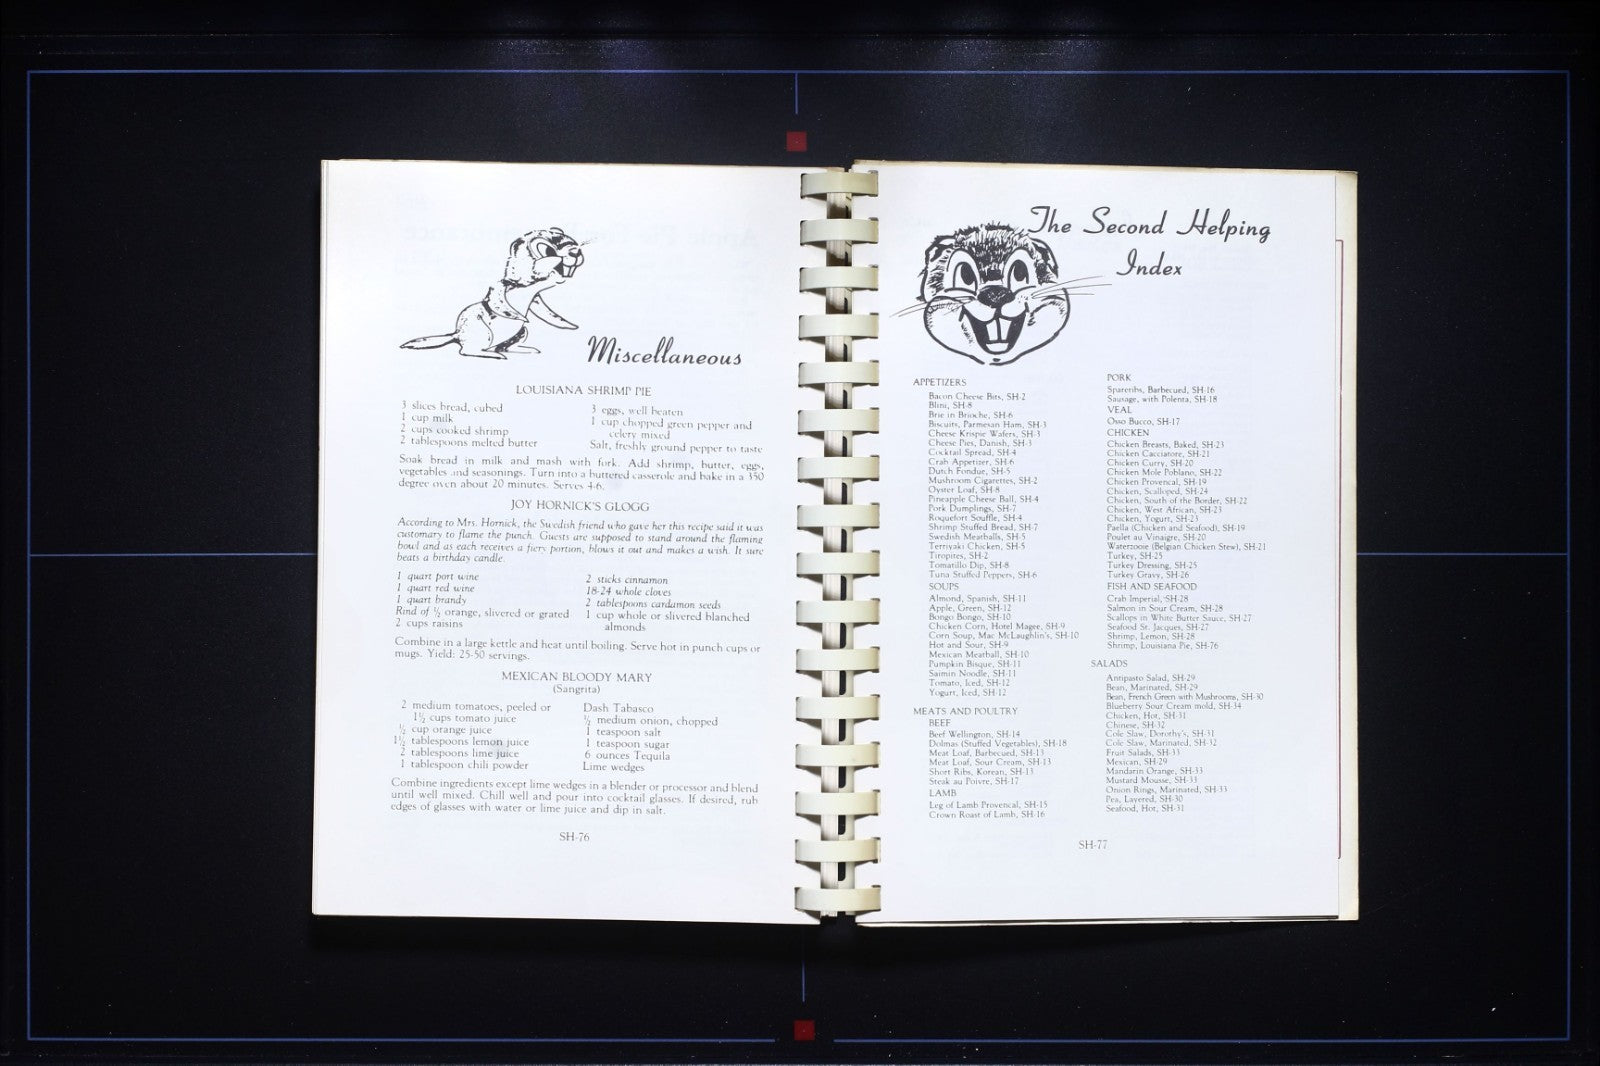 Miscellaneous
LOUISIANA SHRIMP PIE
3 slices bread, cubed
1 cup milk
2 cups cooked shrimp
2 tablespoons melted butter
3 eggs, well beaten
1 cup chopped green pepper and
celery mixed
Salt, freshly ground pepper to taste
Soak bread in milk and mash with fork. Add shrimp, butter, eggs,
vegetables and seasonings. Turn into a buttered casserole and bake in a 350
degree oven about 20 minutes. Serves 4-6.
JOY HORNICK'S GLOGG
According to Mrs. Hornick, the Swedish friend who gave her this recipe said it was
customary to flame the punch. Guests are supposed to stand around the flaming
bowl and as each receives a fiery portion, blows it out and makes a wish. It sure
beats a birthday candle.
1 quart port wine
1 quart red wine
1 quart brandy
Rind of ½ orange, slivered or grated
2 cups raisins
2 sticks cinnamon
18-24 whole cloves
2 tablespoons cardamon seeds
1 cup whole or slivered blanched
almonds
Combine in a large kettle and heat until boiling. Serve hot in punch cups or
mugs. Yield: 25-50 servings.
MEXICAN BLOODY MARY
(Sangrita)
2 medium tomatoes, peeled or
1½ cups tomato juice
½ cup orange juice
1½ tablespoons lemon juice
2 tablespoons lime juice
1 tablespoon chili powder
Dash Tabasco
½ medium onion, chopped
1 teaspoon salt
1 teaspoon sugar
6 ounces Tequila
Lime wedges
Combine ingredients except lime wedges in a blender or processor and blend
until well mixed. Chill well and pour into cocktail glasses. If desired, rub
edges of glasses with water or lime juice and dip in salt.
SH-76
The Second Helping
Index
APPETIZERS
Bacon Cheese Bits, SH-2
Blini, SH-8
Brie in Brioche, SH-6
Biscuits, Parmesan Ham, SH-3
Cheese Krispie Wafers, SH-3
Cheese Pies, Danish, SH-3
Cocktail Spread, SH-4
Crab Appetizer, SH-6
Dutch Fondue, SH-5
Mushroom Cigarettes, SH-2
Oyster Loaf, SH-8
Pineapple Cheese Ball, SH-4
Pork Dumplings, SH-7
Roquefort Souffle, SH-4
Shrimp Stuffed Bread, SH-7
Swedish Meatballs, SH-5
Terriyaki Chicken, SH-5
Tiropites, SH-2
Tomatillo Dip, SH-8
Tuna Stuffed Peppers, SH-6
SOUPS
Almond, Spanish, SH-11
Apple, Green, SH-12
Bongo Bongo, SH-10
Chicken Corn, Hotel Magee, SH-9
Corn Soup, Mac McLaughlin's, SH-10
Hot and Sour, SH-9
Mexican Meatball, SH-10
Pumpkin Bisque, SH-11
Saimin Noodle, SH-11
Tomato, Iced, SH-12
Yogurt, Iced, SH-12
MEATS AND POULTRY
BEEF
Beef Wellington, SH-14
Dolmas (Stuffed Vegetables), SH-18
Meat Loaf, Barbecued, SH-13
Meat Loaf, Sour Cream, SH-13
Short Ribs, Korean, SH-13
Steak au Poivre, SH-17
LAMB
Leg of Lamb Provencal, SH-15
Crown Roast of Lamb, SH-16
PORK
Spareribs, Barbecued, SH-16
Sausage, with Polenta, SH-18
VEAL
Osso Bucco, SH-17
CHICKEN
Chicken Breasts, Baked, SH-23
Chicken Cacciatore, SH-21
Chicken Curry, SH-20
Chicken Mole Poblano, SH-22
Chicken Provencal, SH-19
Chicken, Scalloped, SH-24
Chicken, South of the Border, SH-22
Chicken, West African, SH-23
Chicken, Yogurt, SH-23
Paella (Chicken and Seafood), SH-19
Poulet au Vinaigre, SH-20
Waterzooie (Belgian Chicken Stew), SH-21
Turkey, SH-25
Turkey Dressing, SH-25
Turkey Gravy, SH-26
FISH AND SEAFOOD
Crab Imperial, SH-28
Salmon in Sour Cream, SH-28
Scallops in White Butter Sauce, SH-27
Seafood St. Jacques, SH-27
Shrimp, Lemon, SH-28
Shrimp, Louisiana Pie, SH-76
SALADS
Antipasto Salad, SH-29
Bean, Marinated, SH-29
Bean, French Green with Mushrooms, SH-30
Blueberry Sour Cream mold, SH-34
Chicken, Hot, SH-31
Chinese, SH-32
Cole Slaw, Dorothy's, SH-31
Cole Slaw, Marinated, SH-32
Fruit Salads, SH-33
Mexican, SH-29
Mandarin Orange, SH-33
Mustard Mousse, SH-33
Onion Rings, Marinated, SH-33
Pea, Layered, SH-30
Seafood, Hot, SH-31
SH-77